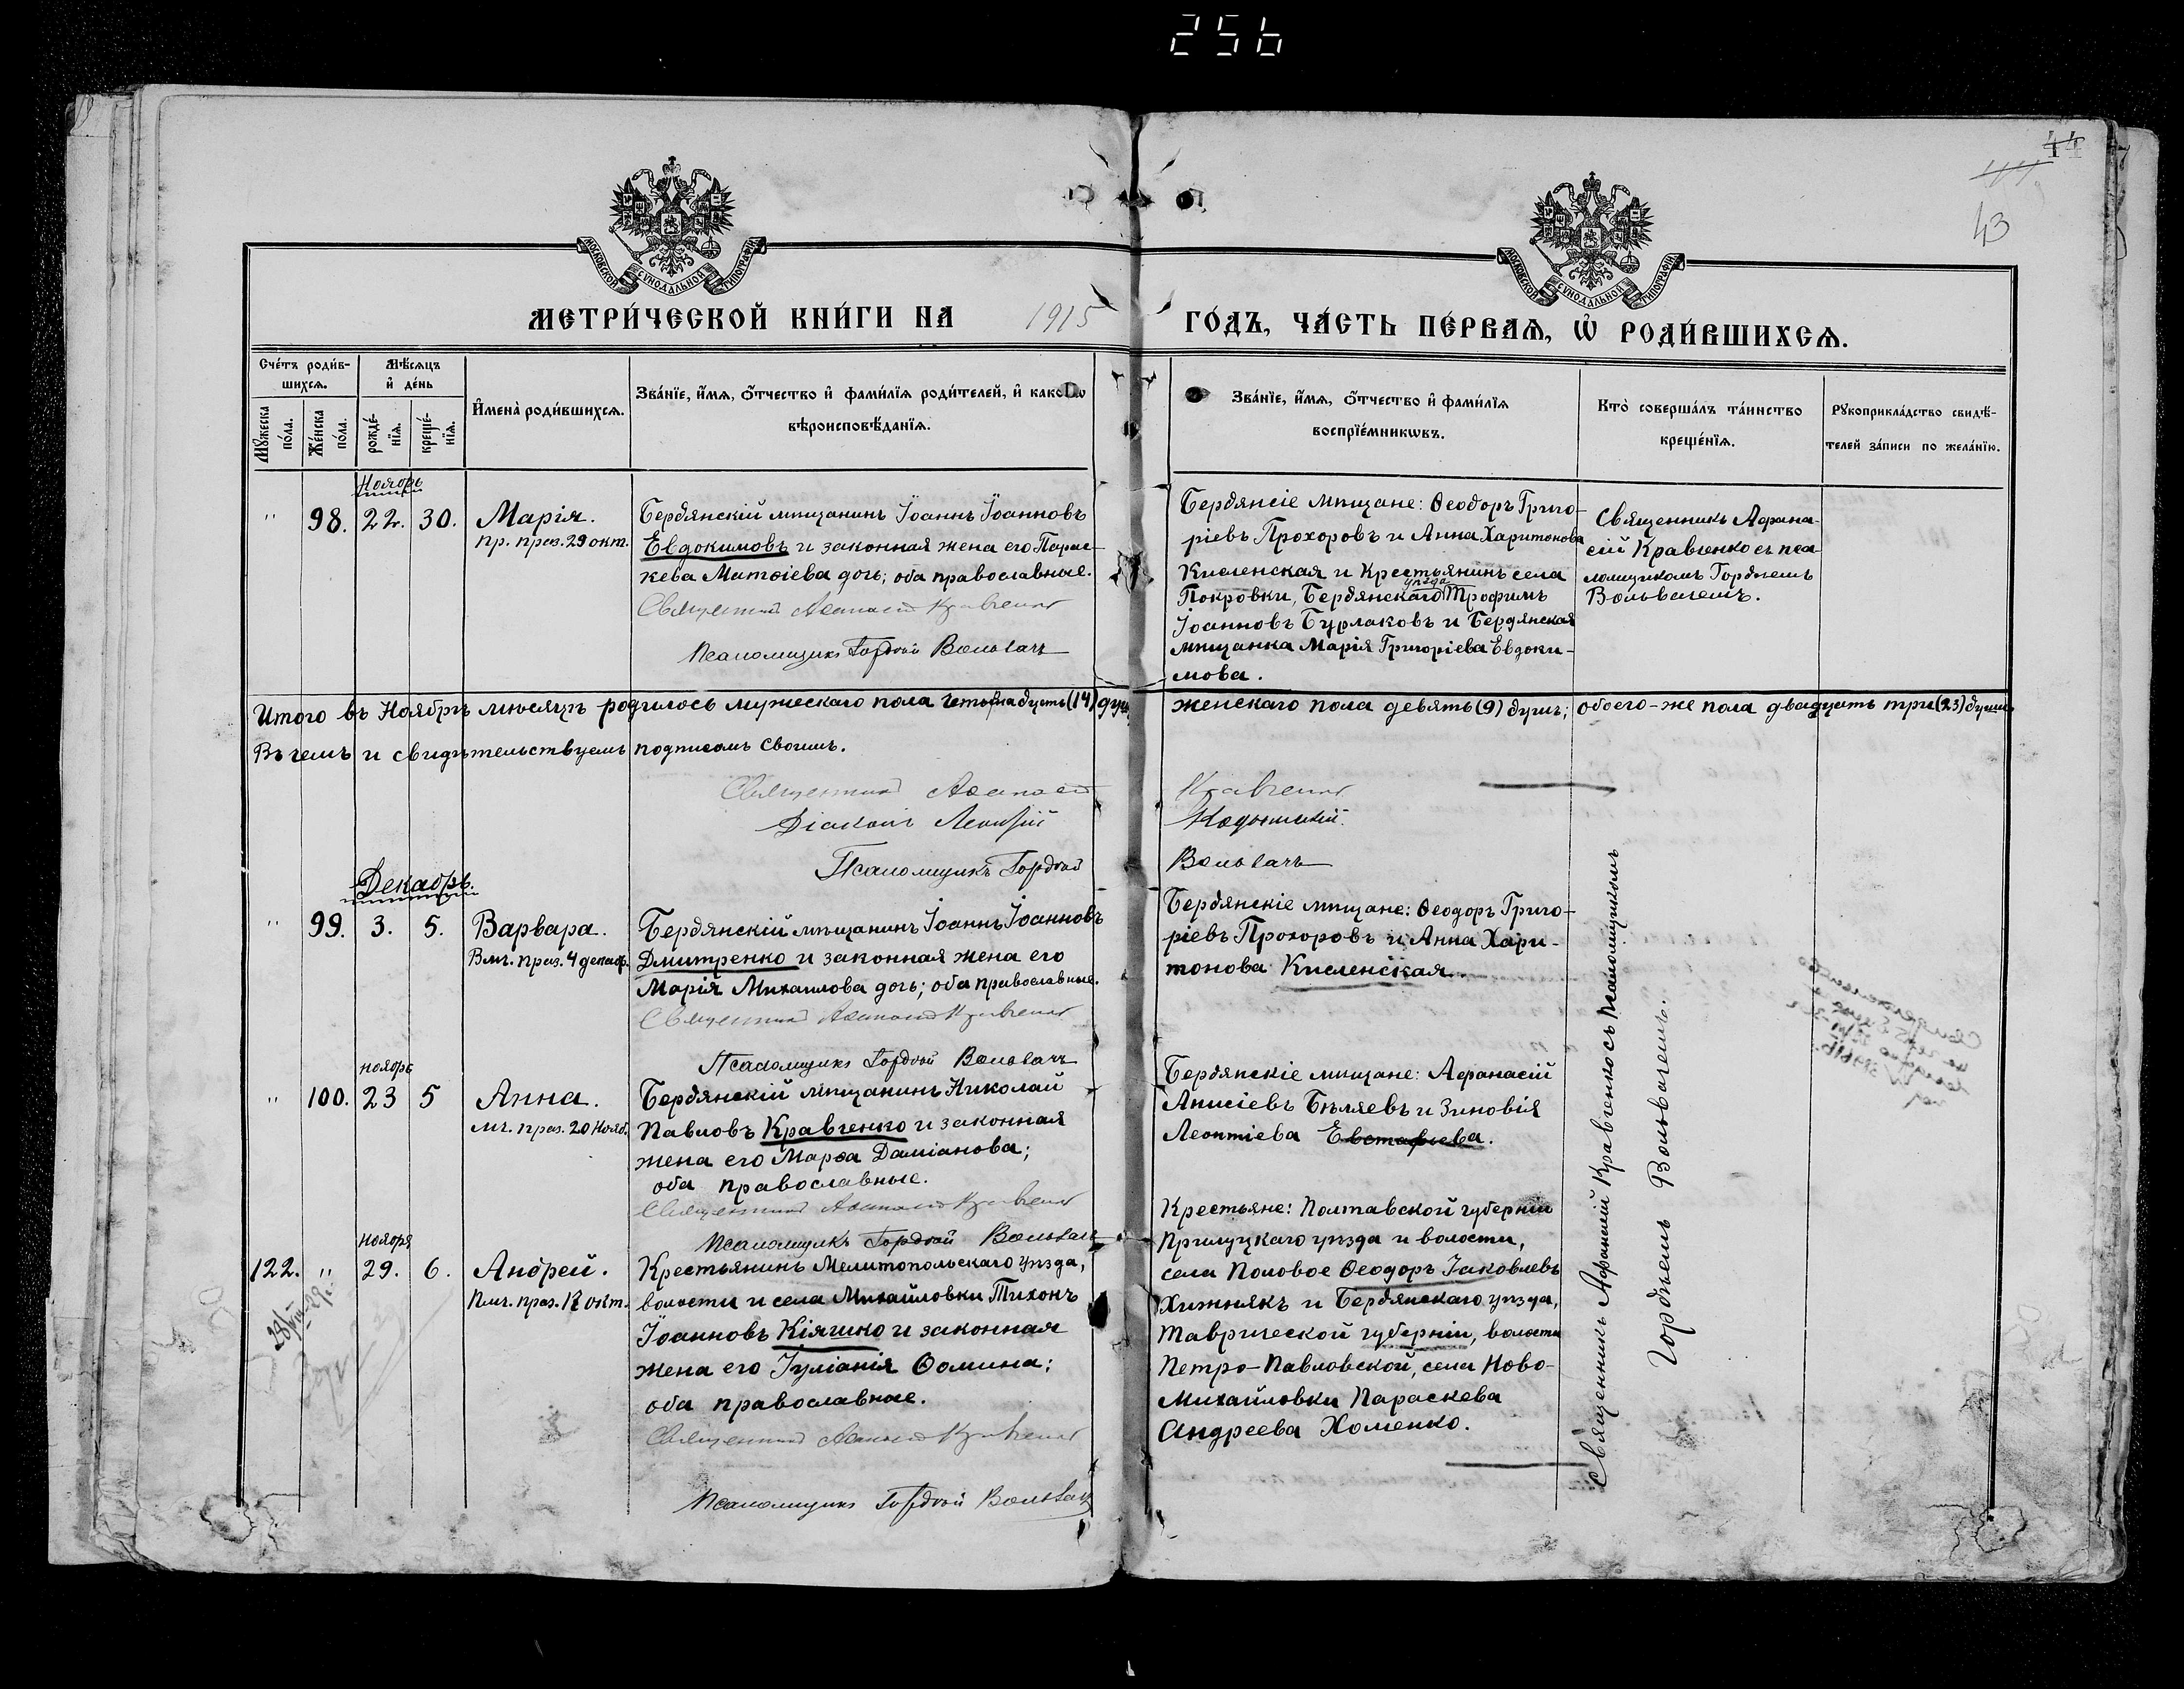 256
44
43
МОСКОВСКОЙ СѴНОДАЛЬНОЙ ТИПОГРАФІИ
МОСКОВСКОЙ СѴНОДАЛЬНОЙ ТИПОГРАФІИ
МЕТРИ́ЧЕСКОЙ КНИ́ГИ НА 1915 ГО́ДЪ, ЧА́СТЬ ПЕ́РВАѦ, Ѡ РОДИ́ВШИХСѦ.
Сче́тъ роди́в-
шихсѧ.
Мѣ́сѧцъ
и҆ де́нь
Мꙋ́жеска
по́ла.
Же́нска
по́ла.
рожде́-
нїѧ.
креще́-
нїѧ.
И҆мена̀ роди́вшихсѧ.
Зва́нїе, и҆́мѧ, ѻ҆́тчество и҆ фами́лїѧ роди́телей, и҆ како́гѡ
вѣроисповѣ́данїѧ.
Зва́нїе, и҆́мѧ, ѻ҆́тчество и҆ фами́лїѧ
воспрїе́мникѡвъ.
Кто̀ соверша́лъ та́инство
креще́нїѧ.
Рꙋкоприкла́дство свидѣ́-
телей за́писи по жела́нїю.
Ноябрь
" 98. 22. 30. Марія.
пр. праз. 29 окт.
Бердянскій мѣщанинъ Іоаннъ Іоанновъ
Евдокимовъ и законная жена его Парас-
кева Матѳіева дочь; оба православные.
Священникъ Аѳанасій Кравченко
Псаломщикъ Гордѣй Вольвачъ
Бердянскіе мѣщане: Ѳеодоръ Григо-
ріевъ Прохоровъ и Анна Харитонова
Кисленская и Крестьянинъ села
Покровки, Бердянскаго уѣзда Трофимъ
Іоанновъ Бурлаковъ и Бердянская
мѣщанка Марія Григоріева Евдоки-
мова.
Священникъ Афана-
сій Кравченко съ пса-
ломщикомъ Гордѣемъ
Вольвачемъ.
Итого въ Ноябрѣ мѣсяцѣ родилось мужескаго пола четырнадцать (14) душъ, женскаго пола девять (9) душъ; обоего-же пола двадцать три (23) души.
Въ чемъ и свидѣтельствуемъ подписомъ своимъ.
Священникъ Аѳанасій Кравченко
Діаконъ Леонтій
Псаломщикъ Гордѣй Вольвачъ
Декабрь.
" 99. 3. 5. Варвара.
Вмч. праз. 4 декабр.
Бердянскій мѣщанинъ Іоаннъ Іоанновъ
Дмитренко и законная жена его
Марія Михаилова дочь; оба православные.
Священникъ Аѳанасій Кравченко
Псаломщикъ Гордѣй Вольвачъ
Бердянскіе мѣщане: Ѳеодоръ Григо-
ріевъ Прохоровъ и Анна Хари-
тонова Кисленская.
ноябрь
" 100. 23 5 Анна.
мч. праз. 20 Нояб.
Бердянскій мѣщанинъ Николай
Павловъ Кравченко и законная
жена его Марѳа Даміанова;
оба православные.
Священникъ Аѳанасій Кравченко
Псаломщикъ Гордѣй Вольвачъ
Бердянскіе мѣщане: Афанасій
Анисіевъ Бѣляевъ и Зиновія
Леонтіева Евстафьева.
ноября
122. " 29. 6. Андрей.
Пмч. праз. 17 окт.
Крестьянинъ Мелитопольскаго уѣзда,
волости и села Михайловки Тихонъ
Іоанновъ Кіяшко и законная
жена его Іуліанія Ѳомина;
оба православные.
Священникъ Аѳанасій Кравченко
Псаломщикъ Гордѣй Вольвачъ
Крестьяне: Полтавской губерніи
Прилуцкаго уѣзда и волости,
села Половое Ѳеодоръ Іаковлевъ
Хижнякъ и Бердянскаго уѣзда,
Таврической губерніи, волости
Петро-Павловской, села Ново-
Михайловки Параскева
Андреева Хоменко.
Священникъ Афанасій Кравченко съ псаломщикомъ
Гордѣемъ Вольвачемъ.